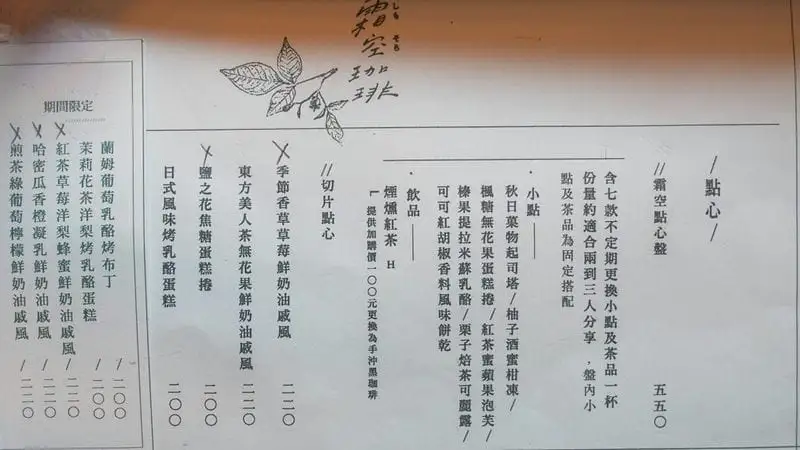 霜空珈琲
しも そら
/點心/
//霜空點心盤 五五〇
含七款不定期更換小點及茶品一杯
份量約適合兩到三人分享，盤內小
點及茶品為固定搭配
·小點——
秋日菓物起司塔/柚子酒蜜柑凍/
楓糖無花果蛋糕捲/紅茶蜜蘋果泡芙/
榛果提拉米蘇乳酪/栗子焙茶可麗露/
可可紅胡椒香料風味餅乾
·飲品——
煙燻紅茶 H
提供加購價一〇〇元更換為手沖黑珈琲
//切片點心
季節香草草莓鮮奶油戚風 二二〇
東方美人茶無花果鮮奶油戚風 二二〇
鹽之花焦糖蛋糕捲 二〇〇
日式風味烤乳酪蛋糕 二〇〇
期間限定
蘭姆葡萄乳酪烤布丁 /二〇〇
茉莉花茶洋梨烤乳酪蛋糕 /二〇〇
紅茶草莓洋梨蜂蜜鮮奶油戚風 /二二〇
哈密瓜香橙凝乳鮮奶油戚風 /二二〇
煎茶綠葡萄檸檬鮮奶油戚風 /二二〇